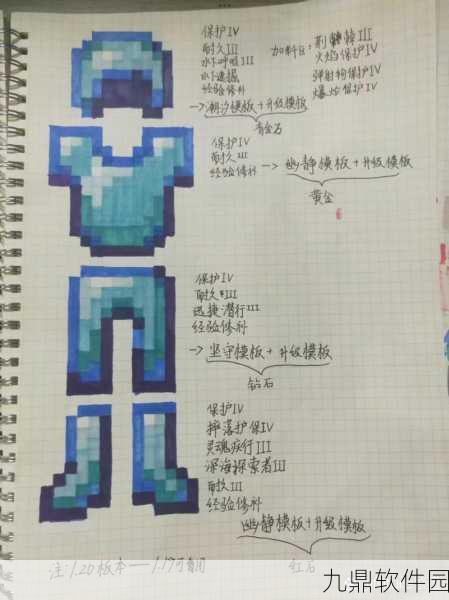 保护IV
耐久III
水下呼吸III
水下速掘
经验修补
加料区:荆棘III
火焰保护IV
弹射物保护IV
爆炸保护IV
→潮汐模板+升级模板
青金石
保护IV
耐久III
经验修补
→幽静模板+升级模板
黄金
保护IV
耐久III
迅捷潜行III
经验修补
→坚守模板+升级模板
钻石
保护IV
摔落护保IV
灵魂疾行III
深海探索者III
耐久III
经验修补
幽静模板+升级模板
红石
注:1.20版本——1.19可备用
九鼎软件园